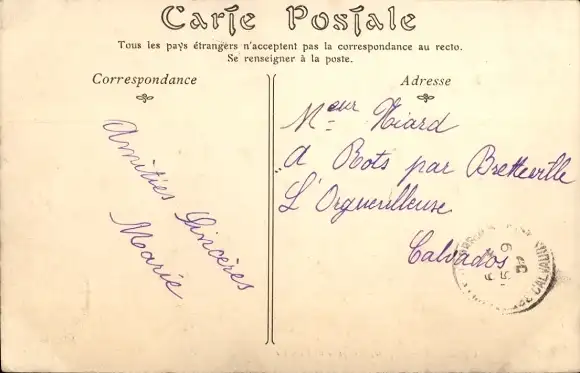 Carte Postale
Tous les pays étrangers n'acceptent pas la correspondance au recto.
Se renseigner à la poste.
Correspondance
Amitiés Sincères
Marie
Adresse
Meur
A Rots par Bretteville
L'Orgueilleuse
Calvados
CALVADOS